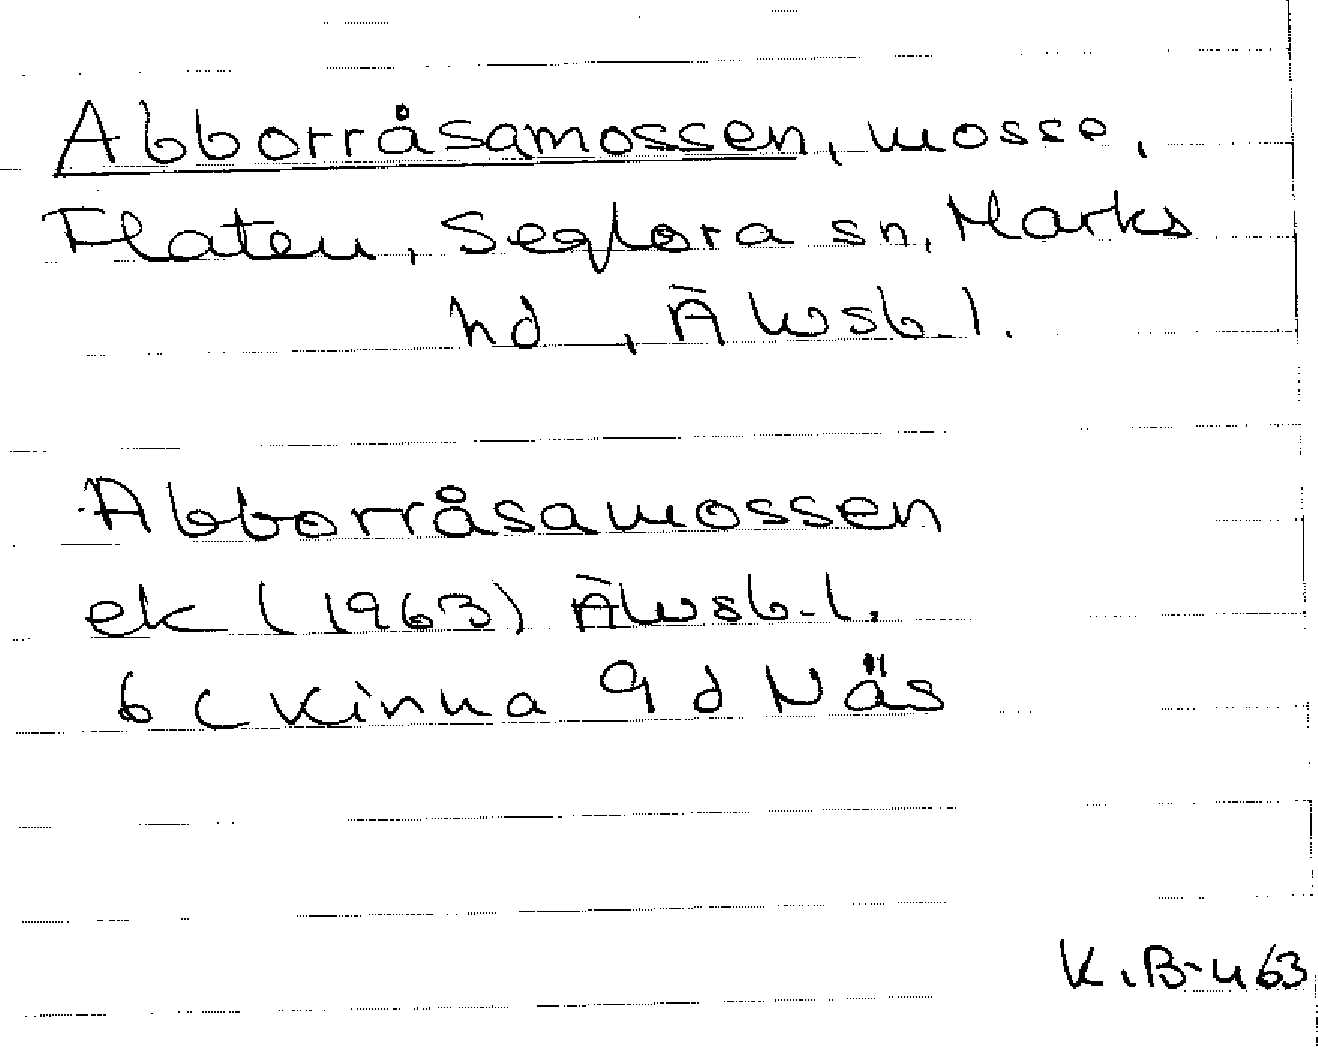 Abborråsamossen, mosse,
Flaten, Seglora sn, Marks
hd, Älvsb.l.
Abborråsamossen
ek (1963) Älvsb.l.
6 C Kinna 9 d Näs
K.B-n 63